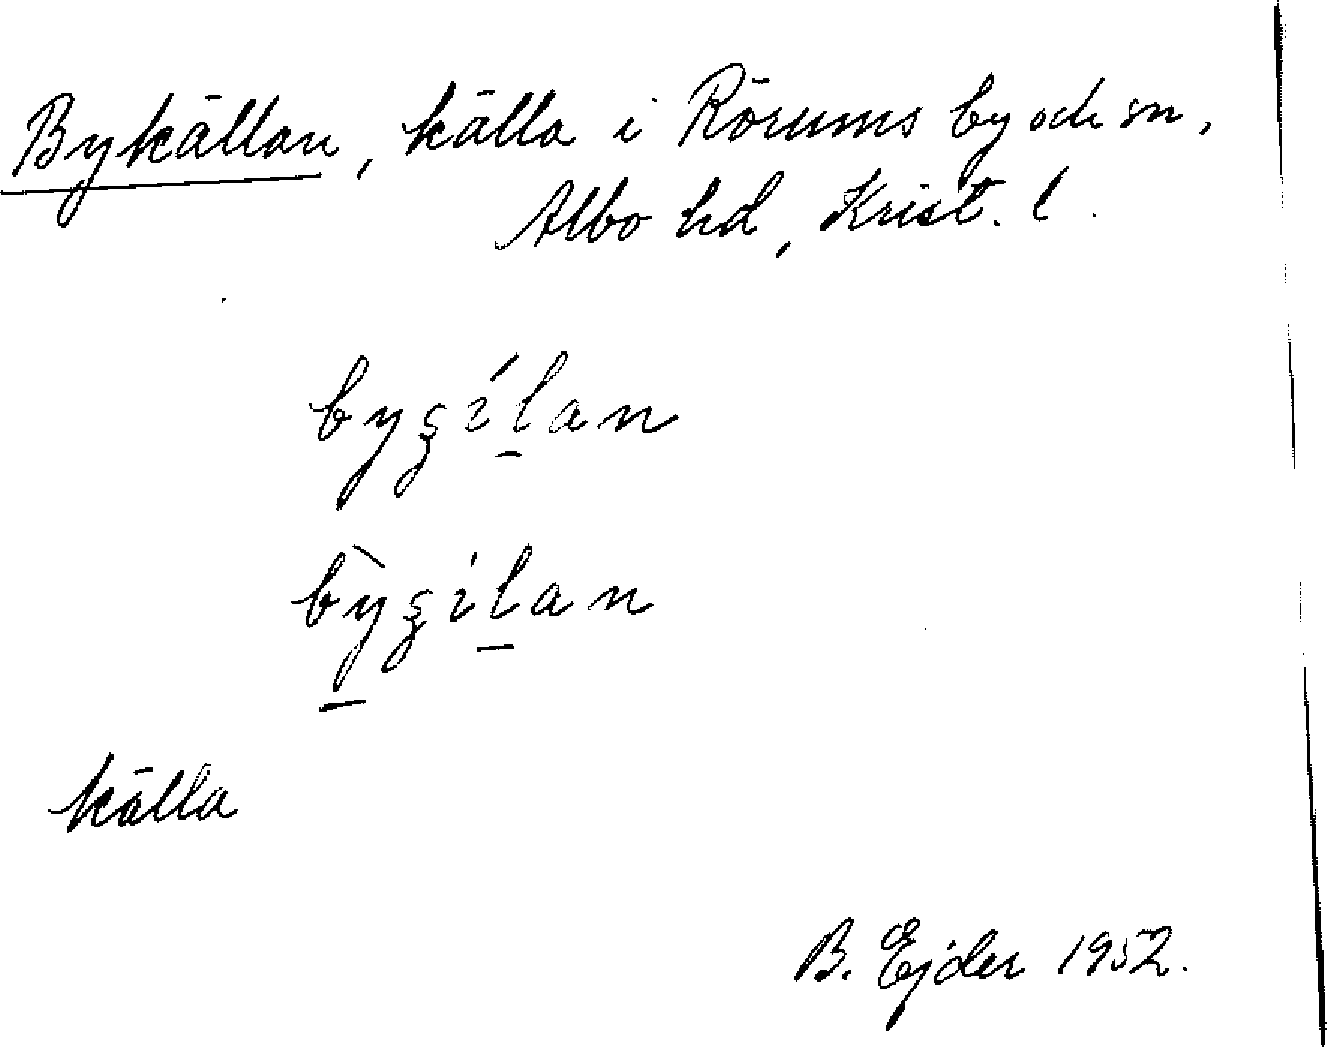 Bykällan, källa i Rörums by och sn,
Albo hd, Krist. l.
byʂíl̠an
bỳ̠ʂil̠an
källa
B. Ejder 1952.